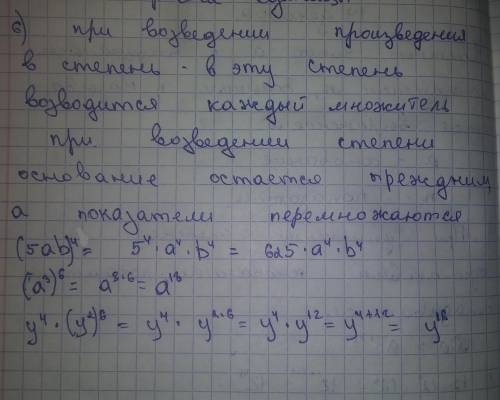 б) при возведении произведения
в степень - в эту степень
возводится каждый множитель
при возведении степени
основание остается преждним,
а показатели перемножаются
(5ab)⁴ = 5⁴·a⁴·b⁴ = 625·a⁴·b⁴
(a³)⁶ = a³·⁶ = a¹⁸
y⁴·(y²)⁶ = y⁴·y²·⁶ = y⁴·y¹² = y⁴⁺¹² = y¹⁶